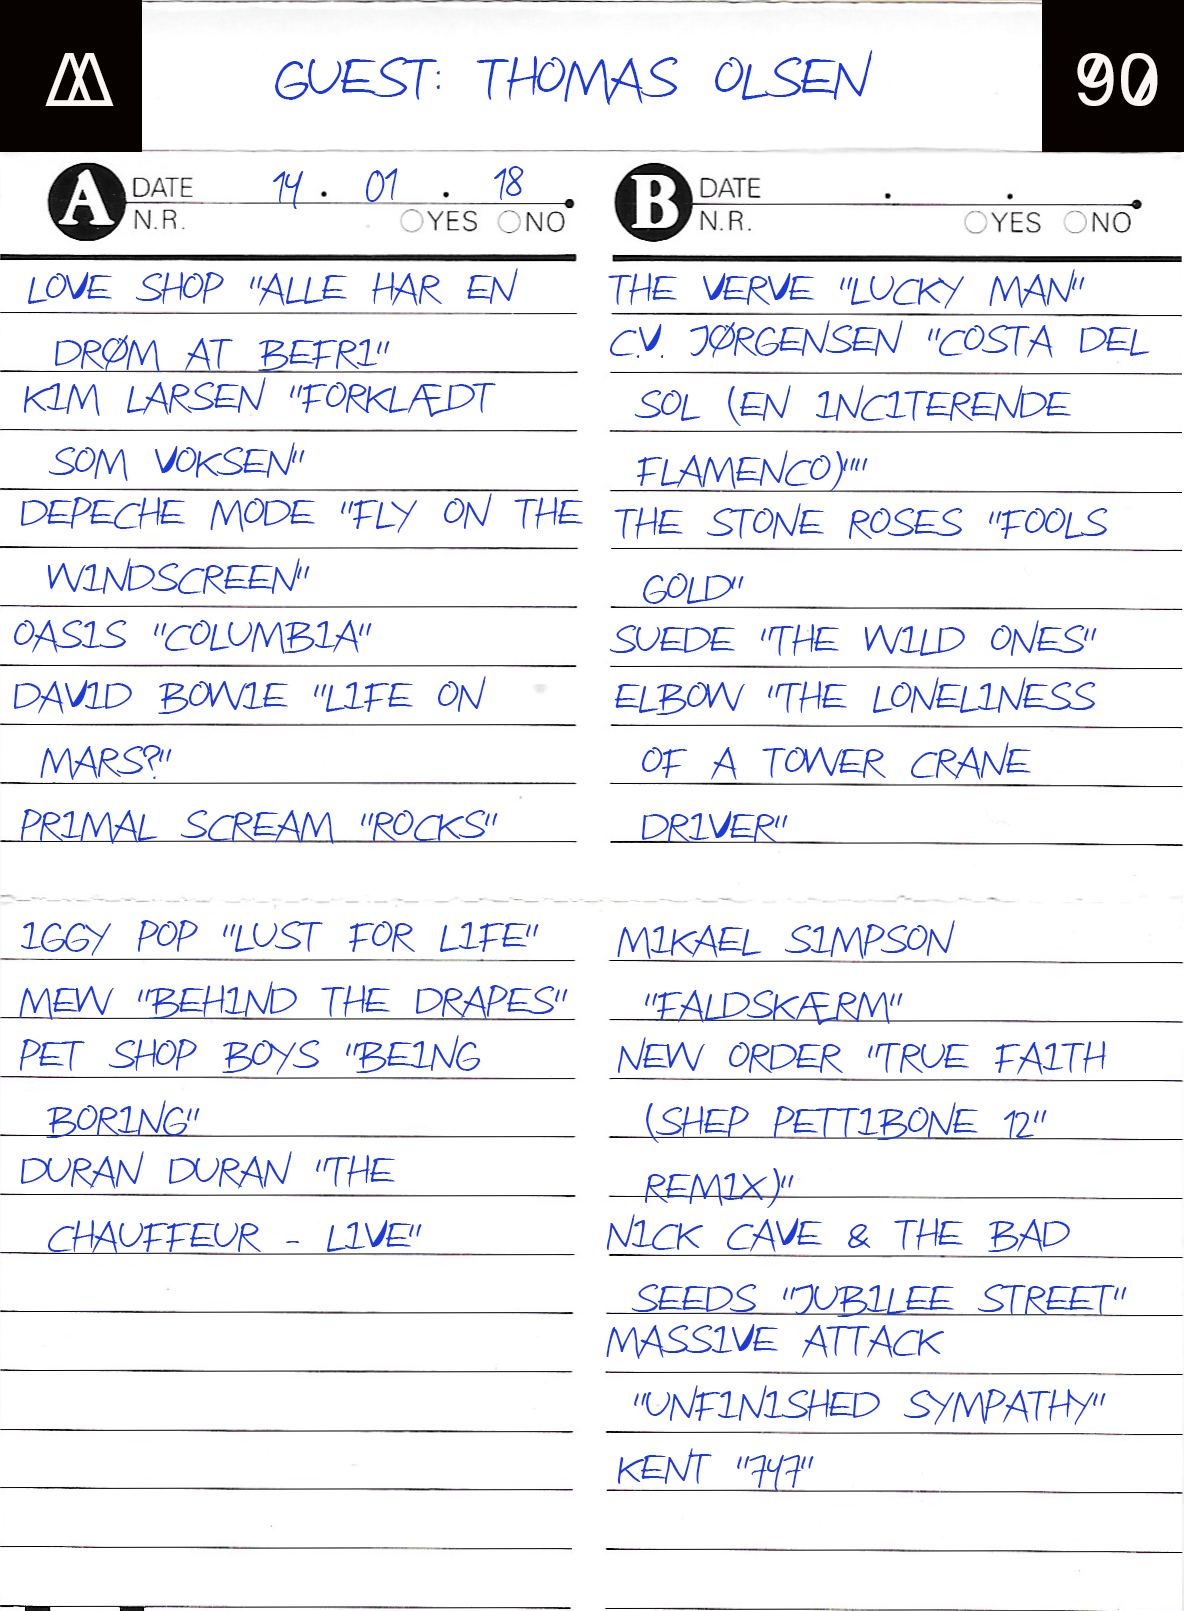 GUEST: THOMAS OLSEN
90
A DATE 14 . 01 . 18
N.R. YES NO
LOVE SHOP "ALLE HAR EN
DRØM AT BEFRI"
KIM LARSEN "FORKLÆDT
SOM VOKSEN"
DEPECHE MODE "FLY ON THE
WINDSCREEN"
OASIS "COLUMBIA"
DAVID BOWIE "LIFE ON
MARS?"
PRIMAL SCREAM "ROCKS"
IGGY POP "LUST FOR LIFE"
MEW "BEHIND THE DRAPES"
PET SHOP BOYS "BEING
BORING"
DURAN DURAN "THE
CHAUFFEUR - LIVE"
B DATE . .
N.R. YES NO
THE VERVE "LUCKY MAN"
C.V. JØRGENSEN "COSTA DEL
SOL (EN INCITERENDE
FLAMENCO)""
THE STONE ROSES "FOOLS
GOLD"
SUEDE "THE WILD ONES"
ELBOW "THE LONELINESS
OF A TOWER CRANE
DRIVER"
MIKAEL SIMPSON
"FALDSKÆRM"
NEW ORDER "TRUE FAITH
(SHEP PETTIBONE 12"
REMIX)"
NICK CAVE & THE BAD
SEEDS "JUBILEE STREET"
MASSIVE ATTACK
"UNFINISHED SYMPATHY"
KENT "747"